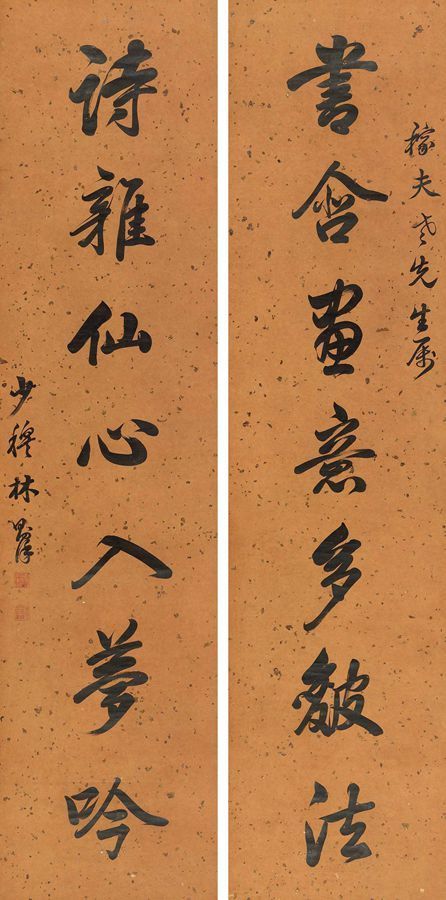 稼夫老先生属
書含畫意多皺法
詩雜仙心入夢吟
少穆林則徐